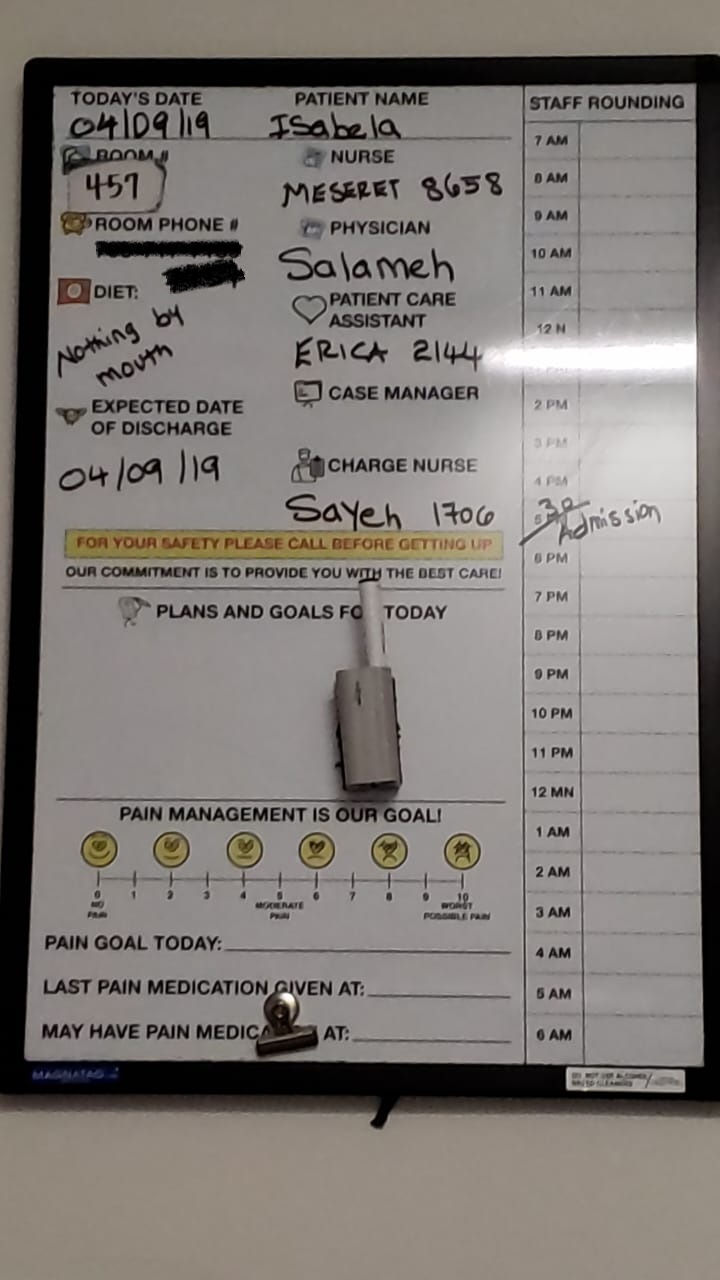 TODAY'S DATE
04/09/19
PATIENT NAME
Isabela
ROOM #
457
NURSE
MESERET 8658
ROOM PHONE #
PHYSICIAN
Salameh
DIET:
Nothing by
mouth
PATIENT CARE
ASSISTANT
ERICA 2144
EXPECTED DATE
OF DISCHARGE
04/09/19
CASE MANAGER
CHARGE NURSE
Sayeh 1706
FOR YOUR SAFETY PLEASE CALL BEFORE GETTING UP
OUR COMMITMENT IS TO PROVIDE YOU WITH THE BEST CARE!
PLANS AND GOALS TODAY
PAIN MANAGEMENT IS OUR GOAL!
0 1 2 3 4 5 6 7 8 9 10
NO
PAIN
MODERATE
PAIN
WORST
POSSIBLE PAIN
PAIN GOAL TODAY:
LAST PAIN MEDICATION GIVEN AT:
MAY HAVE PAIN AT:
MAGNATAG
STAFF ROUNDING
7 AM
8 AM
9 AM
10 AM
11 AM
12 N
2 PM
3 PM
4 PM
5 30 Admission
6 PM
7 PM
8 PM
9 PM
10 PM
11 PM
12 MN
1 AM
2 AM
3 AM
4 AM
5 AM
6 AM
DO NOT USE ALCOHOL
BASED CLEANERS